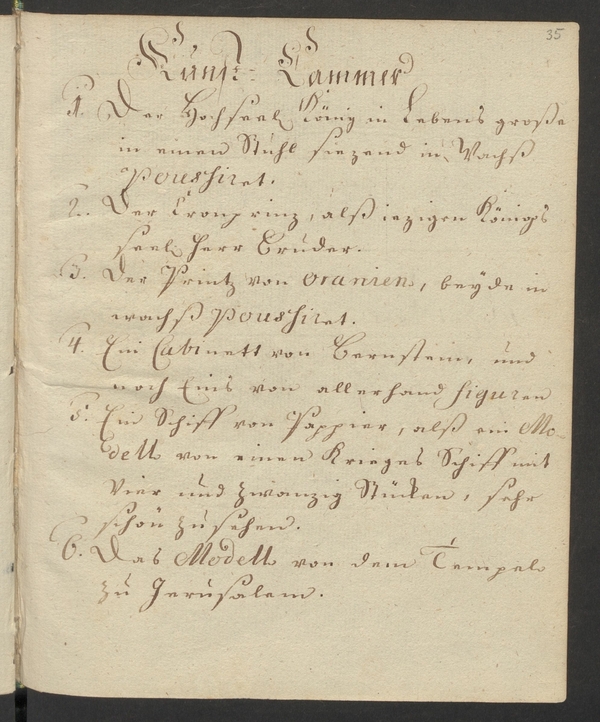 35
Kunst-Cammer
1. Der Hochseel. König in Lebens große
in einen Stuhl siezend in Wachß
Poussiret.
2. Der Cronprinz, alß iezigen Königs
seel. Herr Bruder.
3. Der Printz von Oranien, beyde in
wachß Poussiret.
4. Ein Cabinett von Bernstein, und
noch Eins von allerhand Figuren
5. Ein Schiff von Pappier, alß ein Mo-
dell von einen Krieges Schiff mit
Vier und zwanzig Stücken, sehr
schön zu sehen.
6. Das Modell von dem Tempel
zu Jerusalem.